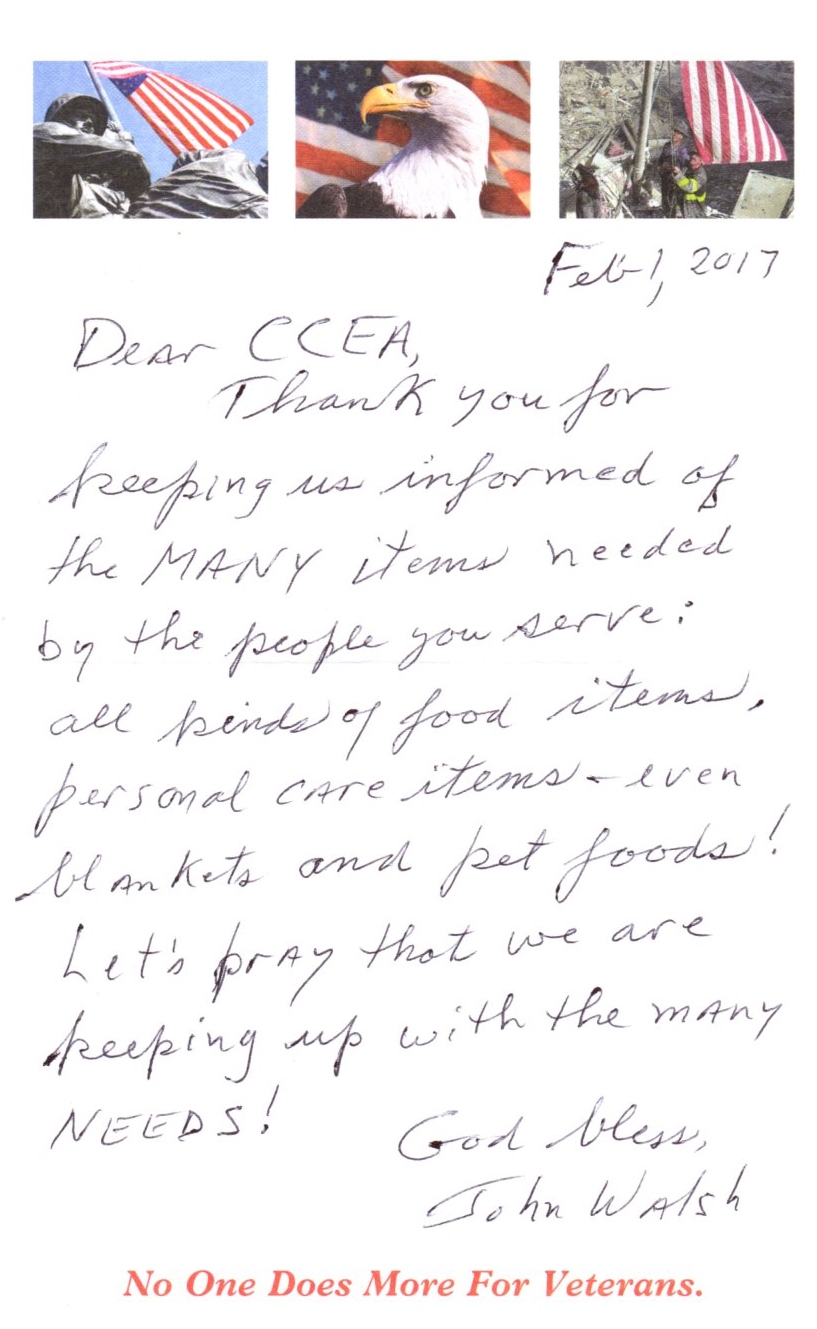 Feb 1, 2017
Dear CCEA,
Thank you for
keeping us informed of
the MANY items needed
by the people you serve:
all kinds of food items,
personal care items - even
blankets and pet foods!
Let's pray that we are
keeping up with the many
NEEDS!
God bless,
John Walsh
No One Does More For Veterans.